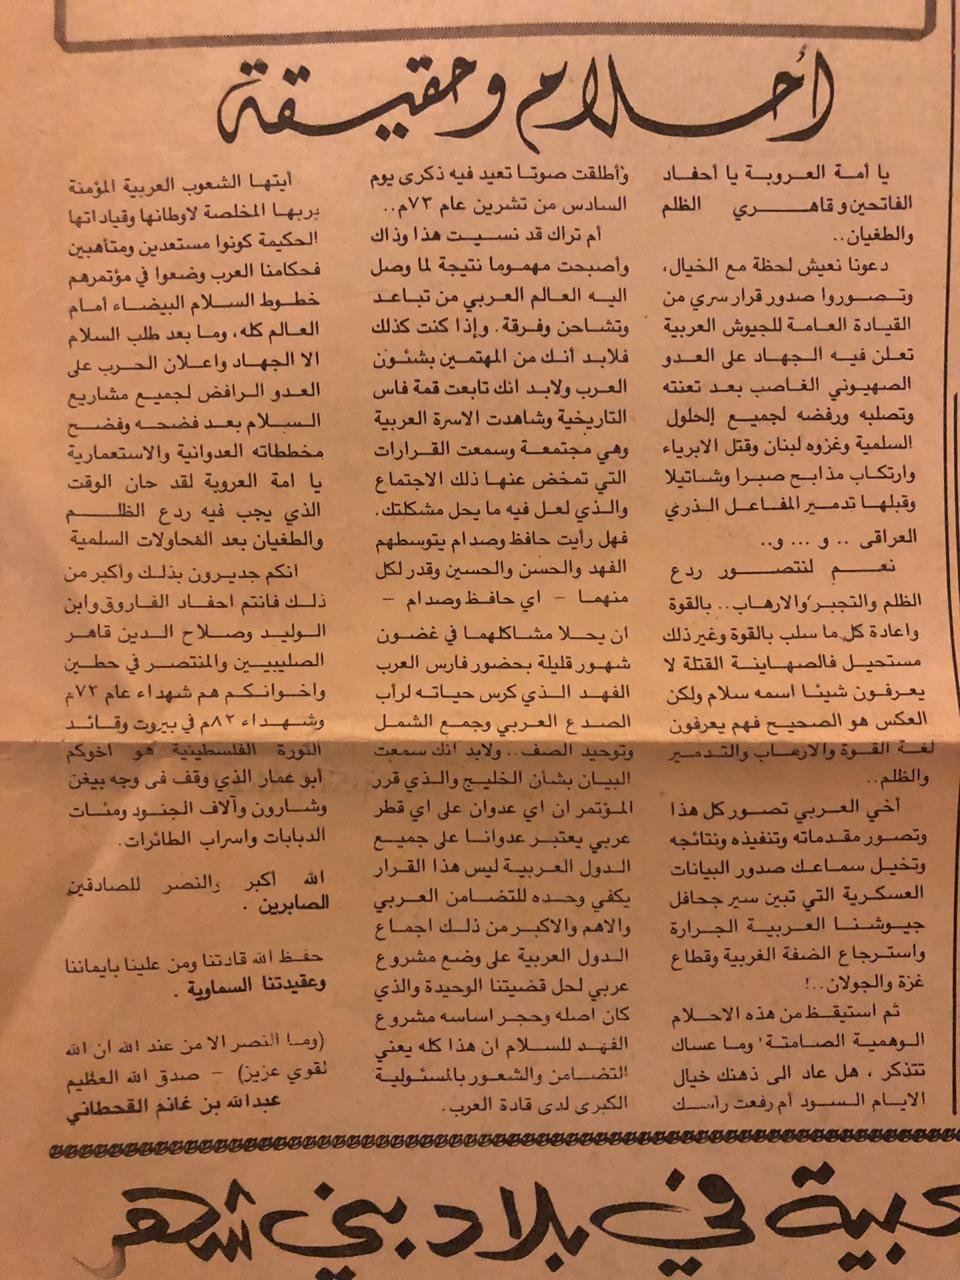 أحلام وحقيقة
يا أمة العروبة يا أحفاد
الفاتحين وقاهري الظلم
والطغيان..
دعونا نعيش لحظة مع الخيال،
وتصوروا صدور قرار سري من
القيادة العامة للجيوش العربية
تعلن فيه الجهاد على العدو
الصهيوني الغاصب بعد تعنته
وتصلبه ورفضه لجميع الحلول
السلمية وغزوه لبنان وقتل الابرياء
وارتكاب مذابح صبرا وشاتيلا
وقبلها تدمير المفاعل الذري
العراقى .. و ... و..
نعم لنتصور ردع
الظلم والتجبر والارهاب.. بالقوة
واعادة كل ما سلب بالقوة وغير ذلك
مستحيل فالصهاينة القتلة لا
يعرفون شيئا اسمه سلام ولكن
العكس هو الصحيح فهم يعرفون
لغة القوة والارهاب والتدمير
والظلم..
أخي العربي تصور كل هذا
وتصور مقدماته وتنفيذه ونتائجه
وتخيل سماعك صدور البيانات
العسكرية التي تبين سير جحافل
جيوشنا العربية الجرارة
واسترجاع الضفة الغربية وقطاع
غزة والجولان..!
ثم استيقظ من هذه الاحلام
الوهمية الصامتة وما عساك
تتذكر ، هل عاد الى ذهنك خيال
الايام السود أم رفعت رأسك
وأطلقت صوتا تعيد فيه ذكرى يوم
السادس من تشرين عام ٧٣م..
أم تراك قد نسيت هذا وذاك
وأصبحت مهموما نتيجة لما وصل
اليه العالم العربي من تباعد
وتشاحن وفرقة. وإذا كنت كذلك
فلابد أنك من المهتمين بشئون
العرب ولابد انك تابعت قمة فاس
التاريخية وشاهدت الاسرة العربية
وهي مجتمعة وسمعت القرارات
التي تمخض عنها ذلك الاجتماع
والذي لعل فيه ما يحل مشكلتك.
فهل رأيت حافظ وصدام يتوسطهم
الفهد والحسن والحسين وقدر لكل
منهما - اي حافظ وصدام -
ان يحلا مشاكلهما في غضون
شهور قليلة بحضور فارس العرب
الفهد الذي كرس حياته لرأب
الصدع العربي وجمع الشمل
وتوحيد الصف.. ولابد انك سمعت
البيان بشأن الخليج والذي قرر
المؤتمر ان اي عدوان على اي قطر
عربي يعتبر عدوانا على جميع
الدول العربية ليس هذا القرار
يكفي وحده للتضامن العربي
والاهم والاكبر من ذلك اجماع
الدول العربية على وضع مشروع
عربي لحل قضيتنا الوحيدة والذي
كان اصله وحجر اساسه مشروع
الفهد للسلام ان هذا كله يعني
التضامن والشعور بالمسئولية
الكبرى لدى قادة العرب.
أيتها الشعوب العربية المؤمنة
بربها المخلصة لاوطانها وقياداتها
الحكيمة كونوا مستعدين ومتأهبين
فحكامنا العرب وضعوا في مؤتمرهم
خطوط السلام البيضاء أمام
العالم كله، وما بعد طلب السلام
الا الجهاد واعلان الحرب على
العدو الرافض لجميع مشاريع
السلام بعد فضحه وفضح
مخططاته العدوانية والاستعمارية
يا امة العروبة لقد حان الوقت
الذي يجب فيه ردع الظلم
والطغيان بعد المحاولات السلمية
انكم جديرون بذلك واكبر من
ذلك فانتم احفاد الفاروق وابن
الوليد وصلاح الدين قاهر
الصليبيين والمنتصر في حطين
واخوانكم هم شهداء عام ٧٣م
وشهداء ٨٢م في بيروت وقائد
الثورة الفلسطينية هو اخوكم
أبو عمار الذي وقف فى وجه بيغن
وشارون وآلاف الجنود ومئات
الدبابات واسراب الطائرات.
الله أكبر والنصر للصادقين
الصابرين .
حفظ الله قادتنا ومن علينا بايماننا
وعقيدتنا السماوية .
(وما النصر الا من عند الله ان الله
لقوي عزيز) - صدق الله العظيم
عبدالله بن غانم القحطاني
في بلاد بني شهر